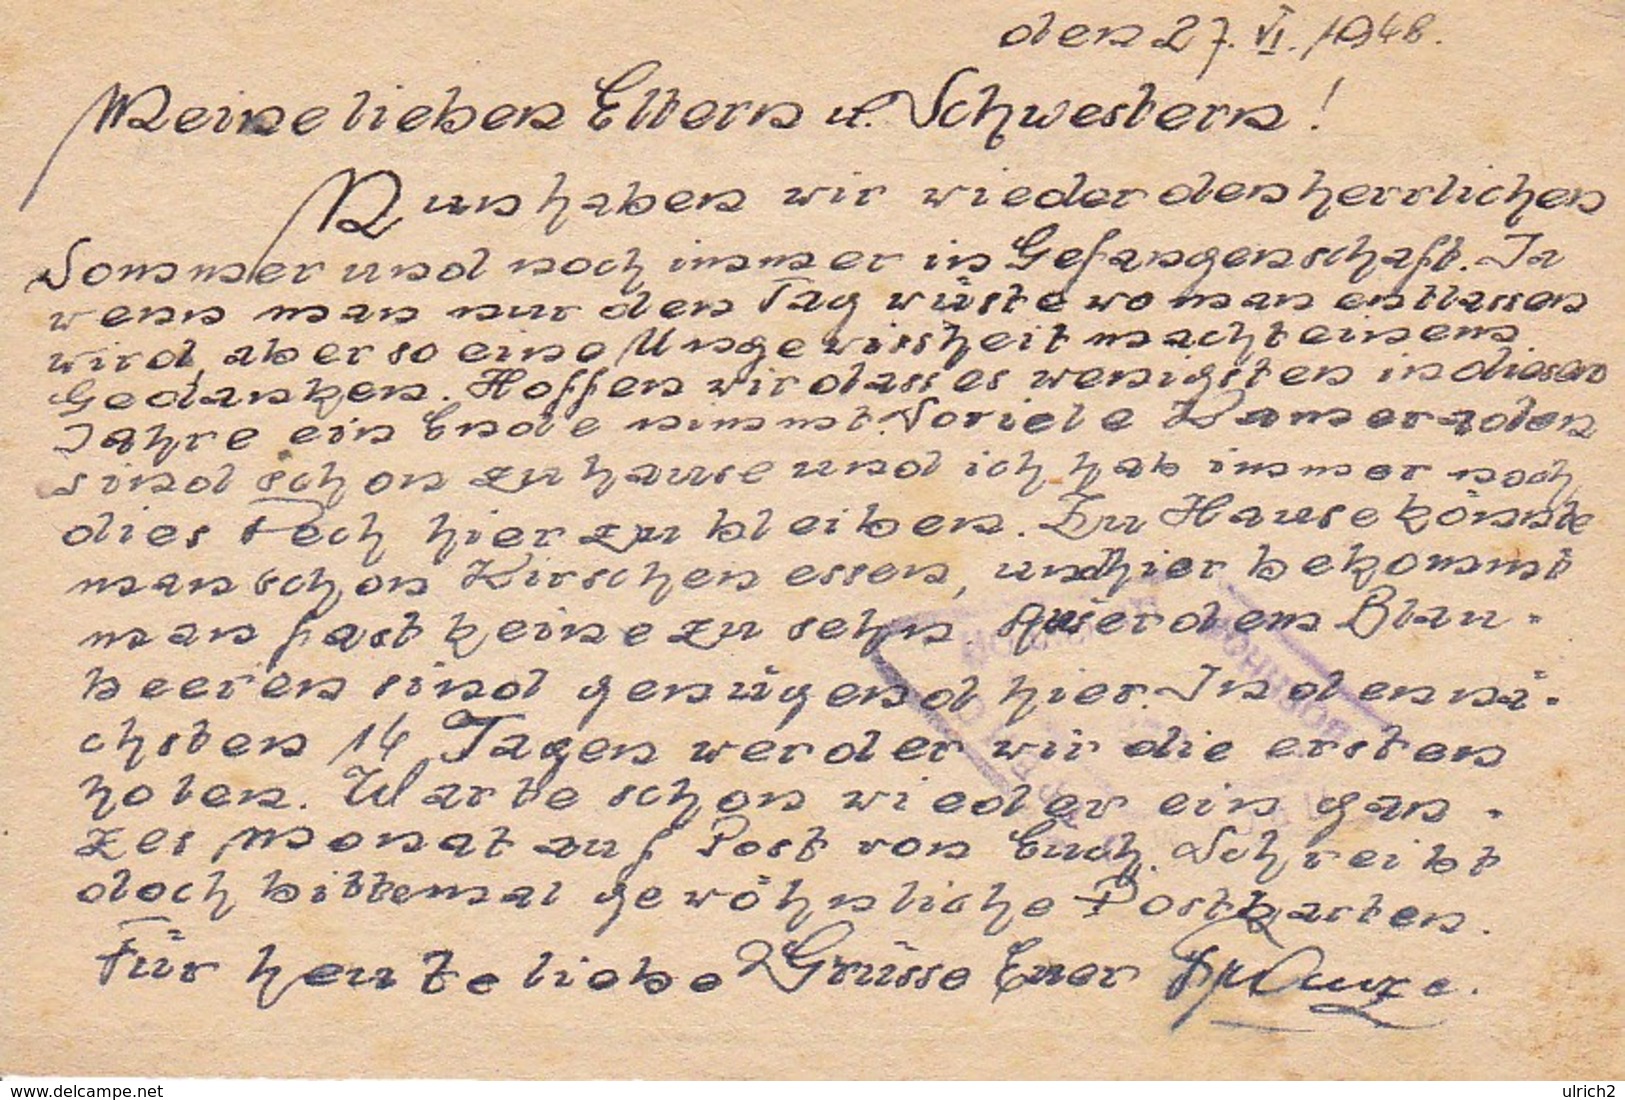 den 27. VI. 1948.
Meine lieben Eltern u. Schwestern!
Nun haben wir wieder den herrlichen
Sommer und noch immer in Gefangenschaft. Ja
wenn man nur den Tag wüste wo man entlassen
wird, aber so eine Ungewissheit macht einem
Gedanken. Hoffen wir dass es wenigsten in diesen
Jahre ein Ende nimmt. Soviele Kameraden
sind schon zu hause und ich hab immer noch
dies Pech hier zu bleiben. Zu Hause könnte
man schon Kirschen essen, und hier bekommt
man fast keine zu sehn. Auserdem Blau-
beeren sind genügend hier. In den nä-
chsten 14 Tagen werder wir die ersten
holen. Warte schon wieder ein gan-
zes Monat auf Post von Euch. Schreibt
doch bitte mal gewöhnliche Postkarten.
Für heute liebe Grüsse Euer
delcampe.net
ulrich2